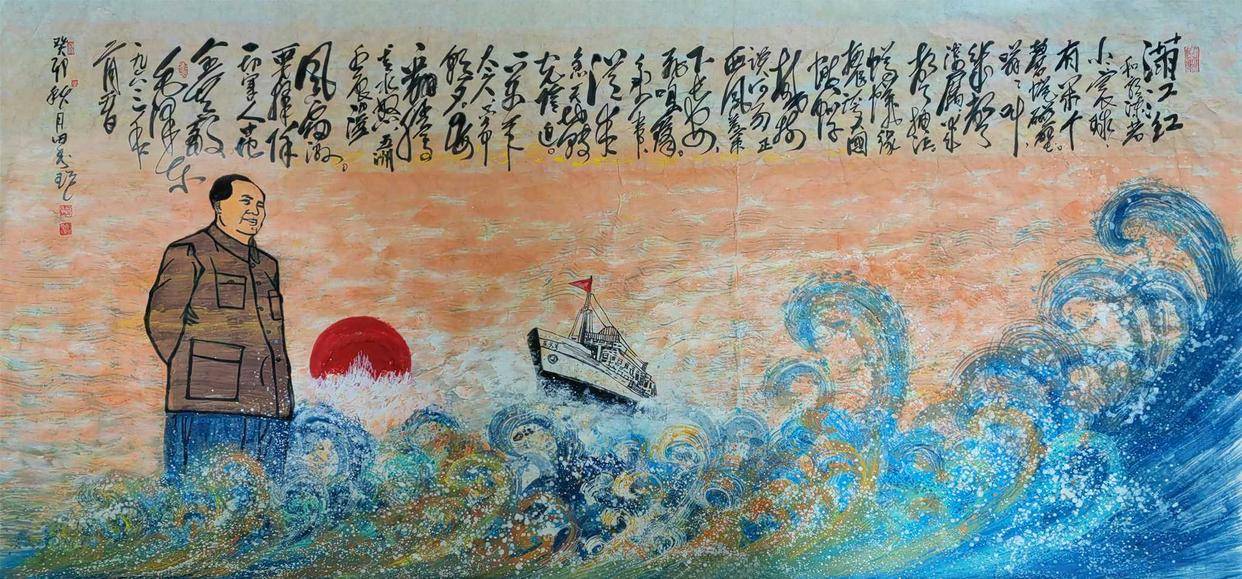 滿江红
和郭沫若
小小寰球,
有几个
苍蝇碰壁。
嗡嗡叫,
几声
凄厉,几
声抽泣。
蚂蚁缘
槐夸大国
蚍蜉
撼树
谈何易。正
西风落叶
下长安,
飞鸣镝。
多少事,
从来
急;天地转,
光阴迫。
一万年
太久,只争
朝夕。四海
翻腾云
水怒,五洲
震荡
风雷激。
要扫除
一切害人虫,
全无敌。
毛泽东
一九六三年
一月九日
癸卯秋月田